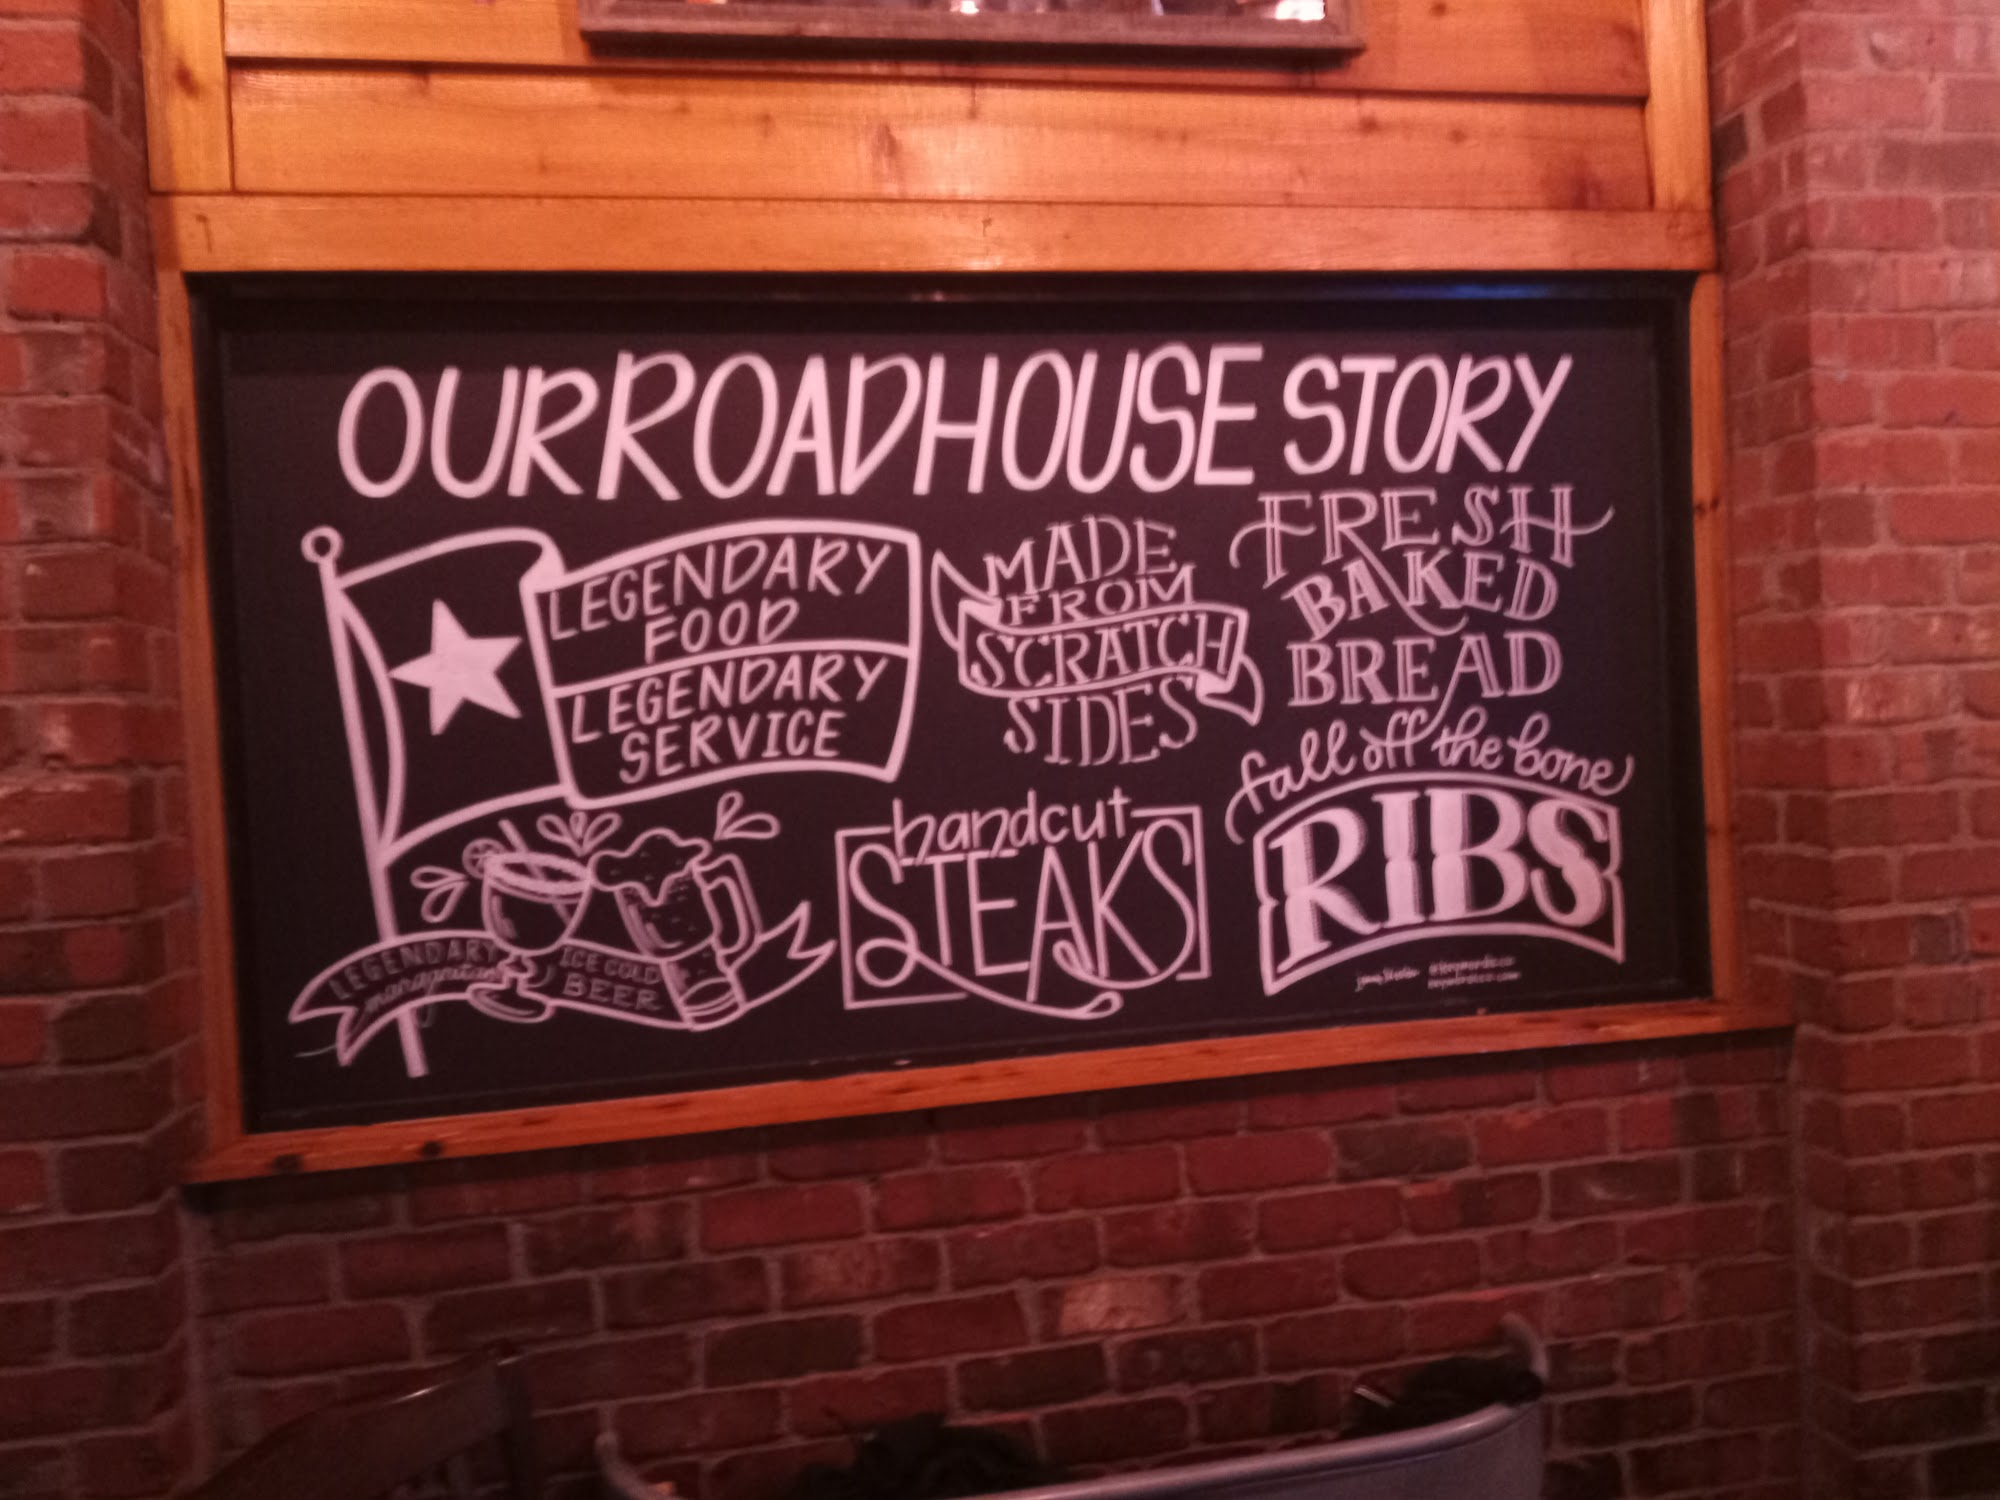 OUR ROADHOUSE STORY
LEGENDARY
FOOD
LEGENDARY
SERVICE
LEGENDARY
margaritas
ICE COLD
BEER
MADE
FROM
SCRATCH
SIDES
handcut
STEAKS
FRESH
BAKED
BREAD
fall off the bone
RIBS